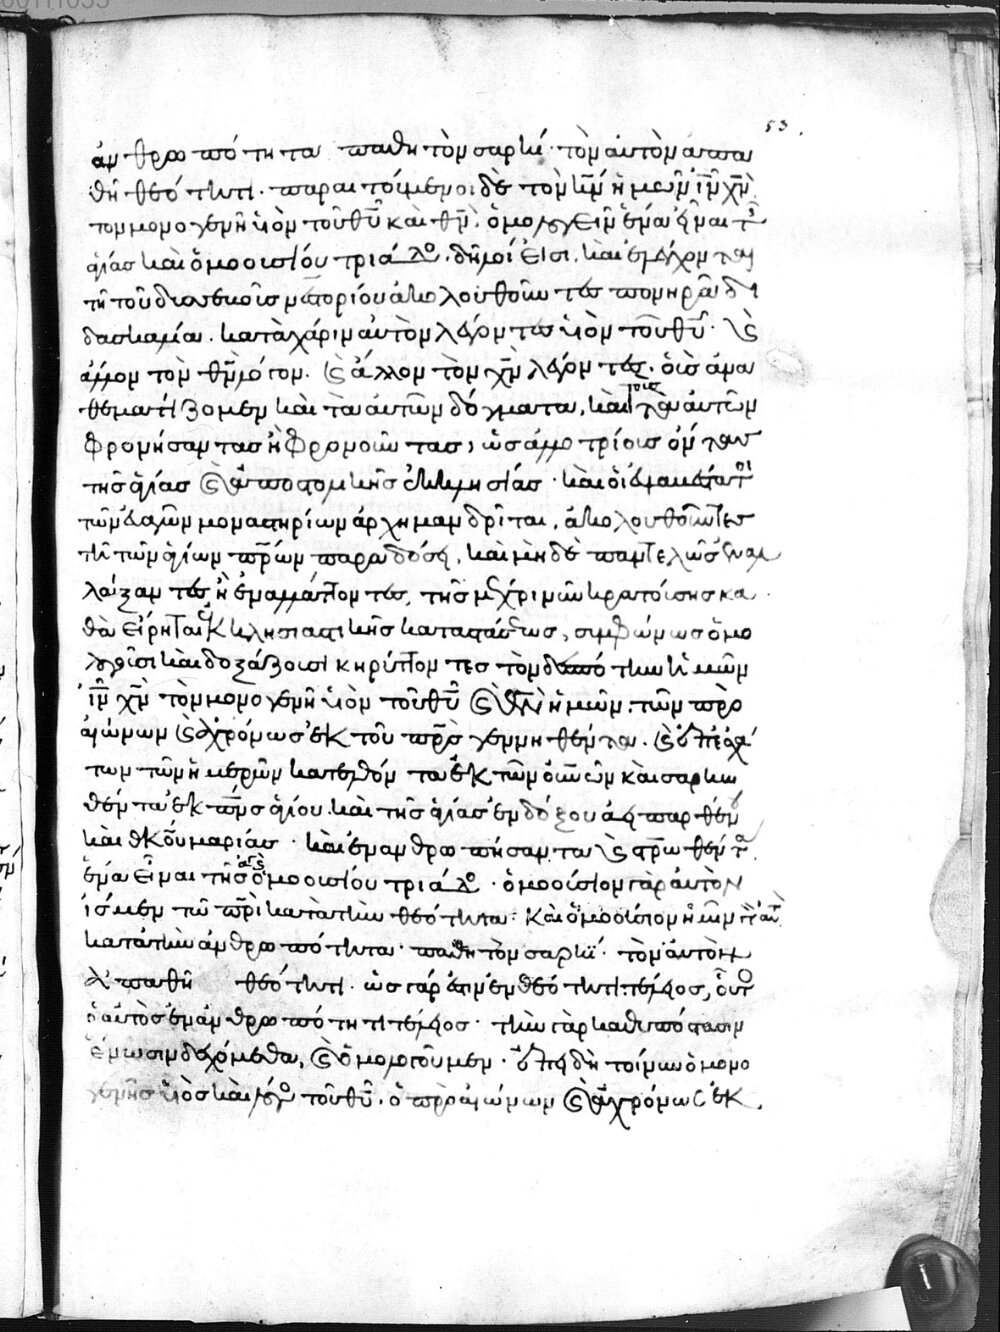 53.
ἀνθρωπότητα παθητὸν σαρκί· τὸν αὐτὸν ἀπα
θῆ θεότητι· παραιτούμενοι δὲ τὸν κν ἡμῶν ιν χν
τον μονογενῆ υἱὸν τοῦ θυ καὶ θν, ὁμολογεῖν ἕνα εἶναι τ
ἁγίας καὶ ὁμοουσίου τριάδο, δῆλοί εἰσι, καὶ ἐλέγχονται
τῆ τοῦ δυσσεβοῦς νεστορίου ἀκολουθοῦντες πονηρᾶ δι
δασκαλία. κατὰ χάριν αὐτὸν λέγοντες υἱὸν τοῦ θυ· καὶ
ἄλλον τὸν θν λόγον. καὶ ἄλλον τὸν χν λέγοντες· οὓς ἀνα
θεματίζομεν καὶ τὰ αὐτῶν δόγματα, καὶ τοὺς τὰ αὐτῶν
φρονήσαντας ἢ φρονοῦντας, ὡς ἀλλοτρίους ὄντας
τῆς ἁγίας καὶ ἀποστολικῆς ἐκκλησίας· καὶ οἱ
τῶν εὐαγῶν μοναστηρίων ἀρχιμανδρῖται, ἀκολουθοῦντες
τῆ τῶν ἁγίων πρων παραδόσει, καὶ μηδὲ παντελῶς ἐναλ
λάξαντες ἢ ἐναλλάττοντες, τῆς μέχρι νῦν κρατούσης κα
θὰ εἴρηται ἐκκλησιαστικῆς καταστάσεως, συμφώνως ὁμο
λογοῦσι καὶ δοξάζουσι κηρύττοντες τὸν δεσπότην ἡμῶν
ιν χν τὸν μονογενῆ υἱὸν τοῦ θυ καὶ θν ἡμῶν· τῶν πρὸ
αἰώνων καὶ ἀχρόνως ἐκ τοῦ πρς γεννηθέντα. καὶ ἐπ᾽ ἐσχά
των τῶν ἡμερῶν κατελθόντα ἐκ τῶν οὐνων καὶ σαρκω
θέντα ἐκ πνς ἁγίου· καὶ τῆς ἁγίας ἐνδόξου ἀειπαρθένου
καὶ θκου μαρίας· καὶ ἐνανθρωπήσαντα καὶ στρωθέντα
ἕνα εἶναι τῆς ἁγίας ὁμοουσίου τριάδο· ὁμοούσιον γὰρ αὐτὸν
ἴσμεν τῶ πρι κατὰ τὴν θεότητα· καὶ ὁμοούσιον ἡμῖν τὸν αὐτ
κατὰ τὴν ἀνθρωπότητα· παθητὸν σαρκί· τὸν αὐτὸν
ἀπαθῆ θεότητι· ὥσπερ γάρ ἐστιν ἐν θεότητι τέλειος, οὕτ
ὁ αὐτὸς ἐν ἀνθρωπότητι τέλειος· τὴν γὰρ καθ᾽ ὑπόστασιν
ἕνωσιν δεχόμεθα, καὶ ὁμολογοῦμεν· ἐπειδὴ τοίνυν ὁ μονο
γενὴς υἱὸς καὶ λόγο τοῦ θυ. ὁ πρὸ αἰώνων καὶ ἀχρόνως ἐκ